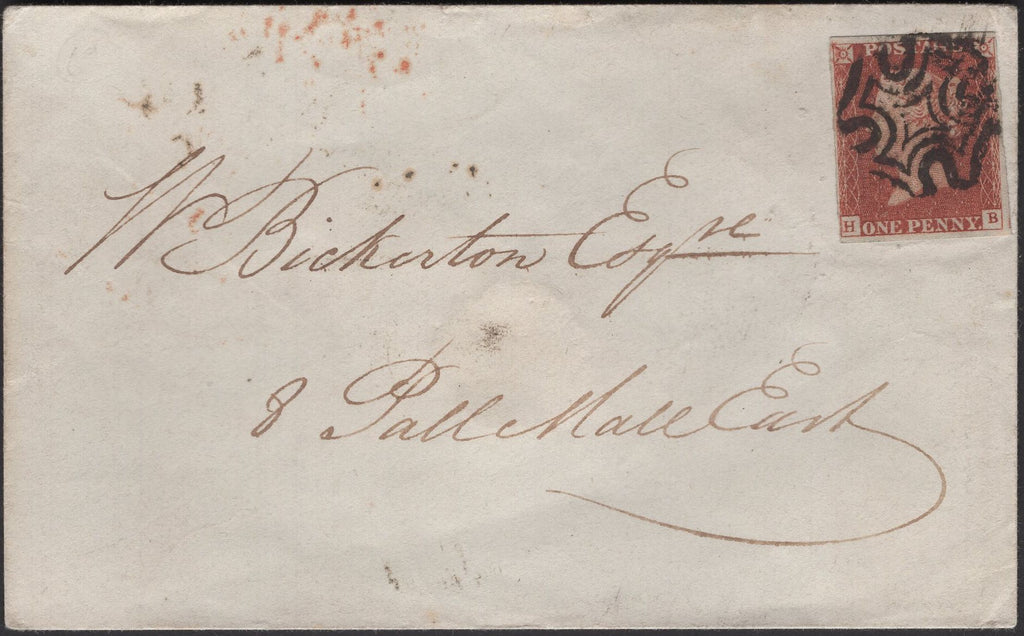 POSTAGE
H ONE PENNY B
W Bickerton Esqre
8 Pall Mall East